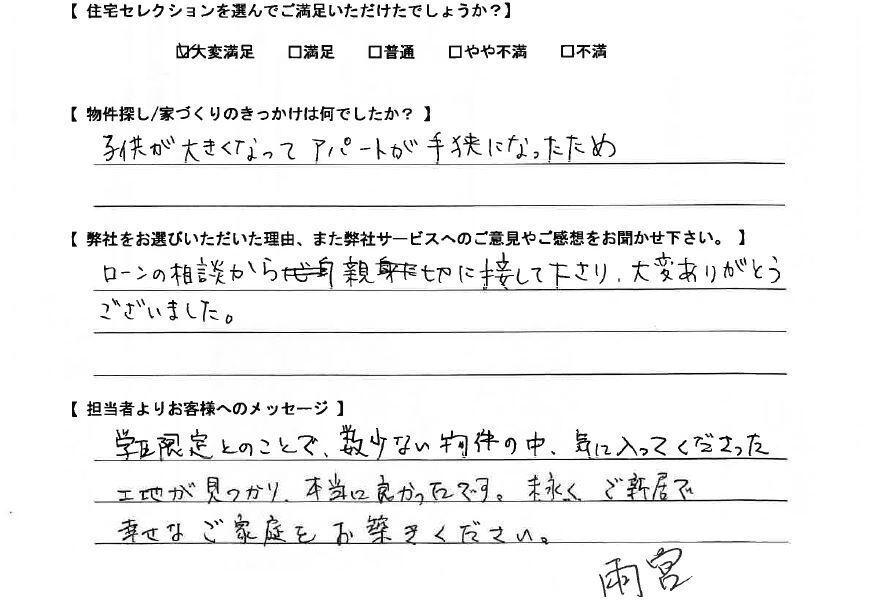 【 住宅セレクションを選んでご満足いただけたでしょうか？】
☑大変満足 □満足 □普通 □やや不満 □不満
【 物件探し/家づくりのきっかけは何でしたか？ 】
子供が大きくなってアパートが手狭になったため
【 弊社をお選びいただいた理由、また弊社サービスへのご意見やご感想をお聞かせ下さい。 】
ローンの相談から親切に接して下さり、大変ありがとう
ございました。
【 担当者よりお客様へのメッセージ 】
学区限定とのことで、数少ない物件の中、気に入ってくださった
土地が見つかり、本当に良かったです。末永く ご新居で
幸せな ご家庭を お築きください。
雨宮